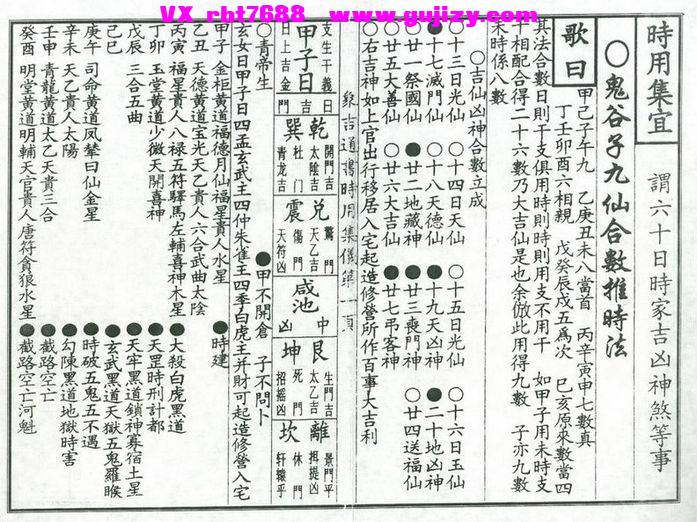 VX rbt7688 www.gujizy.com
時用集宜　謂六十日時家吉凶神煞等事
○鬼谷子九仙合數推時法
歌曰
甲己子午九　乙庚丑未八當首　丙辛寅申七數真
丁壬卯酉六相親　戊癸辰戌五為次　巳亥原來數當四
其法合數日則干支俱用時則時則用支不用干　如甲子用未時支
干相配合得二十六數乃大吉仙是也余倣此用得九數　子亦九數
未時係八數
○吉仙凶神合數立成
○十三日光仙　○十四日天仙　○十五日光仙　○十六日玉仙
●十七滅門仙　○十八天德仙　●十九天凶神　●二十地凶神
○廿一祭國仙　●廿二地藏神　○廿三喪門神　○廿四送福仙
○廿五大善仙　○廿六大吉仙　●廿七弔客神
○右吉神如上官出行移居入宅起造修營所作百事大吉利
象吉通書時用集儀第一頁
支生干義日
甲子日
日上吉金門吉
乾 開門吉 太陰吉
巽 杜門 青龍吉
兌 驚門 天乙吉
震 傷門 天符凶
咸池
中
凶
艮 生門吉 太乙吉
坤 死門 招搖凶
離 景門平
坎 休門 軒轅平
○青帝生　●甲不開倉　子不問卜
玄女日甲子日四孟玄武主四仲朱雀主四季白虎主并財可起造修營入宅
甲子　金柜黃道福德月仙福星貴人水星　●時建
乙丑　天德黃道宝光天乙貴人六合武曲太陰
丙寅　福星貴人八禄五符驛馬左輔喜神木星　●大殺白虎黑道
丁卯　玉堂黃道少微天開喜神　●天罡時刑計都
戊辰　三合五曲　●天牢黑道鎖神寡宿土星
己巳　●玄武黑道天獄五鬼羅睺
庚午　司命黃道凤輦日仙金星　●時破五鬼五不遇
辛未　天乙貴人太陽　●勾陳黑道地獄時害
壬申　青龍黃道太乙天貴三合　●截路空亡
癸酉　明堂黃道明輔天官貴人唐符貪狼水星　●截路空亡河魁